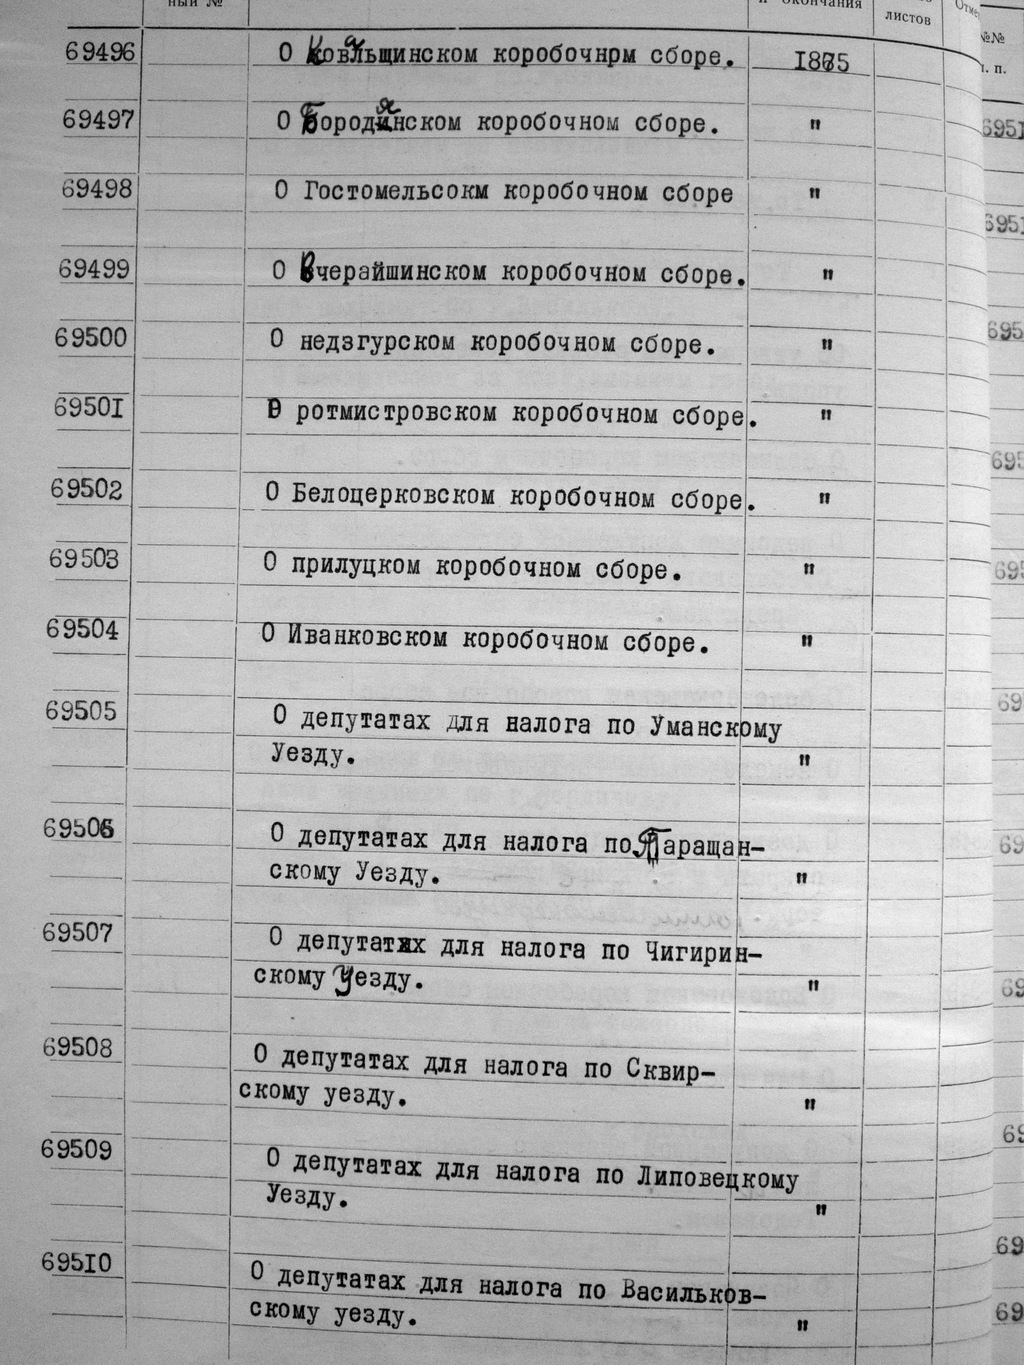 ный № и окончания листов Отме
№№
п. п.
69496 О Ковальщинском коробочнрм сборе. 1875
69497 О Бородянском коробочном сборе. "
69498 О Гостомельсокм коробочном сборе "
69499 О Вчерайшинском коробочном сборе. "
69500 О недзгурском коробочном сборе. "
69501 О ротмистровском коробочном сборе. "
69502 О Белоцерковском коробочном сборе. "
69503 О прилуцком коробочном сборе. "
69504 О Иванковском коробочном сборе. "
69505 О депутатах для налога по Уманскому
Уезду. "
69506 О депутатах для налога по Таращан-
скому Уезду. "
69507 О депутатах для налога по Чигирин-
скому Уезду. "
69508 О депутатах для налога по Сквир-
скому уезду. "
69509 О депутатах для налога по Липовецкому
Уезду. "
69510 О депутатах для налога по Васильков-
скому уезду. "